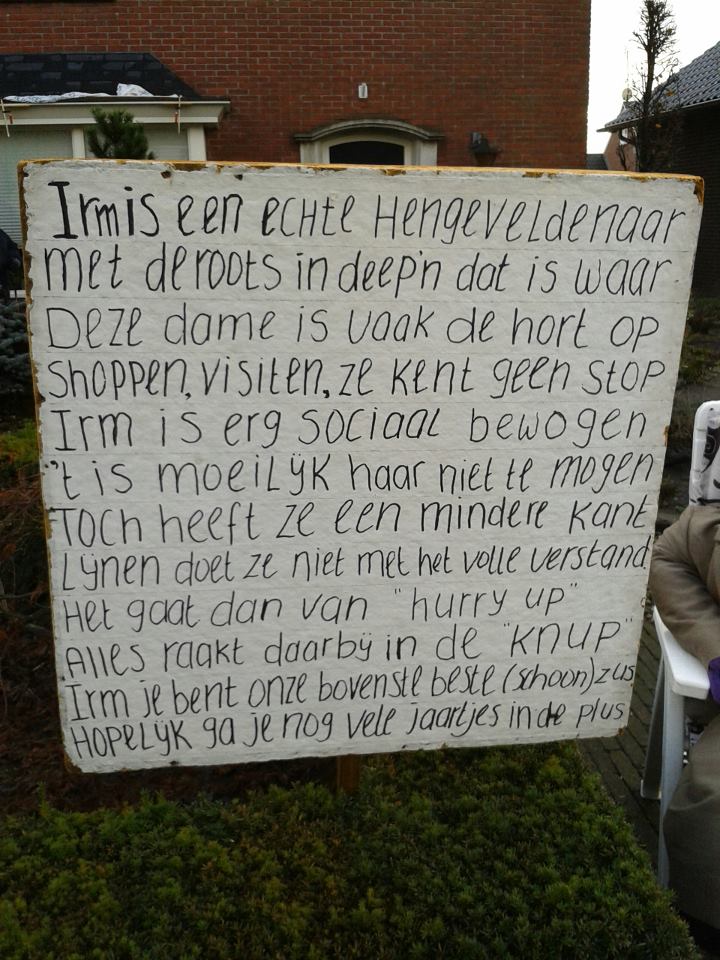 Irm is een echte Hengeveldenaar
met de roots in deep'n dat is waar.
Deze dame is vaak de hort op
shoppen, visiten, ze kent geen stop
Irm is erg sociaal bewogen
't is moeilijk haar niet te mogen
Toch heeft ze een mindere kant
Lijnen doet ze niet met het volle verstand
Het gaat dan van "hurry up"
Alles raakt daarbij in de "knup"
Irm je bent onze bovenste beste (schoon)zus
Hopelijk ga je nog vele jaartjes in de plus